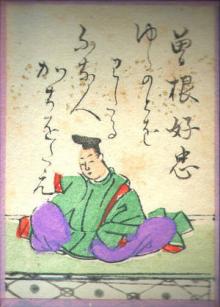 曾根好忠
ゆらのとを
わたる
ふな人
かちをたえ